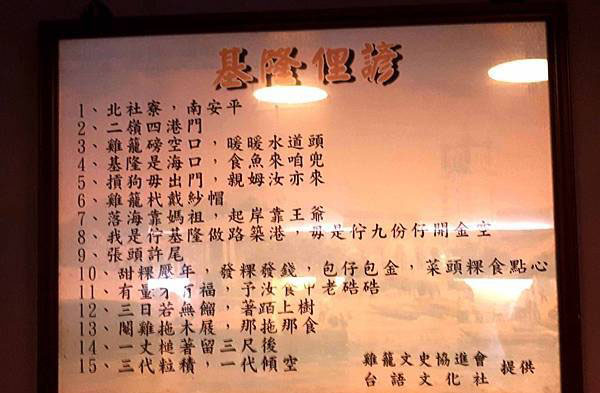 基隆俚諺
1、北社寮，南安平
2、二嶺四港門
3、雞籠磅空口，暖暖水道頭
4、基隆是海口，食魚來咱兜
5、摃狗毋出門，親姆汝亦來
6、雞籠杙戴紗帽
7、落海靠媽祖，起岸靠王爺
8、我是佇基隆做路築港，毋是佇九份仔開金空
9、張頭許尾
10、甜粿壓年，發粿發錢，包仔包金，菜頭粿食點心
11、有量才有福，予汝食甲老硞硞
12、三日若無餾，著蹈上樹
13、閹雞拖木屐，那拖那食
14、一丈槌著留三尺後
15、三代粒積，一代傾空
雞籠文史協進會
台語文化社 提供